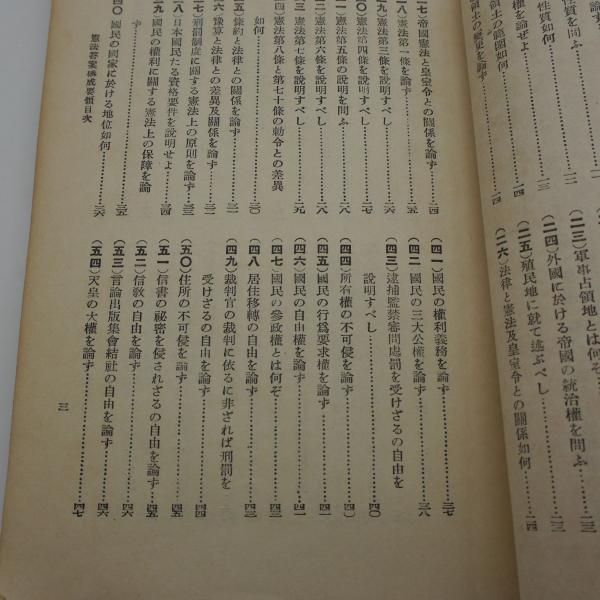 領土の變更を論ず……一四
領土の範圍如何……一四
權を論ぜよ……一三
性質如何……一二
性質を問ふ……
(二三)軍事占領地とは何ぞ
(二四)外國に於ける帝國の統治權を問ふ……二三
(二五)殖民地に就て述ぶべし……二三
(二六)法律と憲法及皇室令との關係如何……二四
二七)帝國憲法と皇室令との關係を論ず……二四
憲法第一條を論ず……二五
憲法第三條を說明すべし
憲法第四條を說明すべし……二七
一)憲法第五條の說明を問ふ……二八
二)憲法第六條を說明すべし……二八
三)憲法第七條を說明すべし……二九
四)憲法第八條と第七十條の勅令との差異
如何……三〇
五)條約と法律との關係を論ず……三一
六)豫算と法律との差異及關係を論ず……三二
七)刑罰制度に關する憲法上の原則を論ず……三三
八)日本國民たる資格要件を說明せよ……三四
九)國民の權利に關する憲法上の保障を論
ず……三五
四〇)國民の國家に於ける地位如何……三六
憲法答案構成要領目次
(四一)國民の權利義務を論ず……三七
(四二)國民の三大公權を論ず……三八
(四三)逮捕監禁審問處罰を受けざるの自由を
說明すべし……四〇
(四四)所有權の不可侵を論ず……四〇
(四五)國民の行爲要求權を論ず……四一
(四六)國民の自由權を論ず……四一
(四七)國民の參政權とは何ぞ……四二
(四八)居住移轉の自由を論ず……四三
(四九)裁判官の裁判に依るに非ざれば刑罰を
受けざるの自由を論ず……四四
(五〇)住所の不可侵を論ず……四五
(五一)信書の祕密を侵されざるの自由を論ず……四五
(五二)信敎の自由を論ず……四六
(五三)言論出版集會結社の自由を論ず……四六
(五四)天皇の大權を論ず……四七
三